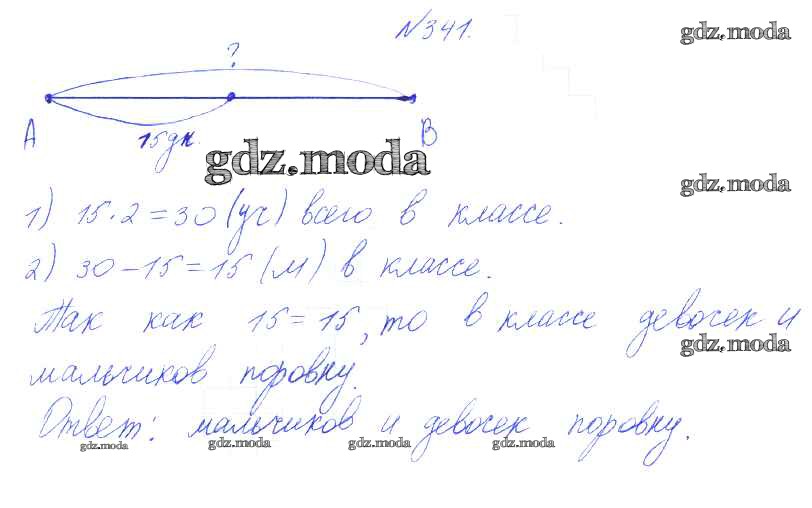 №341.
gdz.moda
?
A
15дн.
B
gdz.moda
gdz.moda
1) 15·2=30(уч) всего в классе.
2) 30-15=15(м) в классе.
Так как 15=15, то в классе девочек и
gdz.moda
мальчиков поровну.
Ответ: мальчиков и девочек поровну.
gdz.moda gdz.moda gdz.moda gdz.moda